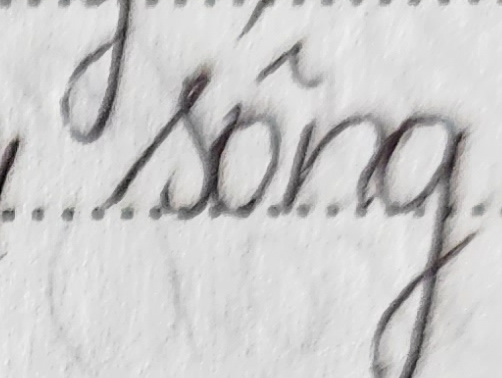 sông